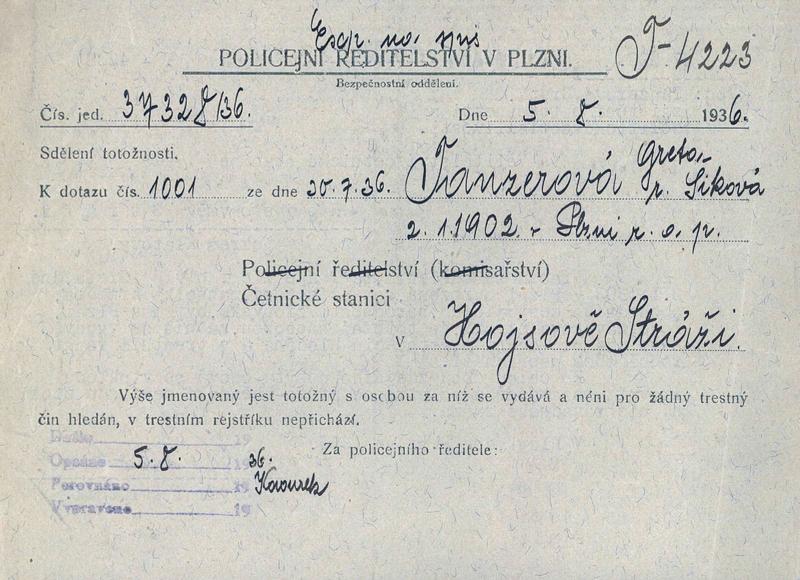 Exp. na spis
POLICEJNÍ ŘEDITELSTVÍ V PLZNI.
T-4223
Bezpečnostní oddělení.
Čís. jed. 37328/36.
Dne 5. 8. 1936.
Sdělení totožnosti.
K dotazu čís. 1001 ze dne 30.7.36. Tanzerová Greta r. Siková
2.1.1902 - Plzni r. o. p.
Policejní ředitelství (komisařství)
Četnické stanici
v Hojsově Stráži.
Výše jmenovaný jest totožný s osobou za níž se vydává a néni pro žádný trestný
čin hledán, v trestním rejstříku nepřichází.
Došlo 19
Za policejního ředitele:
Opsáno 5.8. 1936.
Porovnáno 19
Vypraveno 19